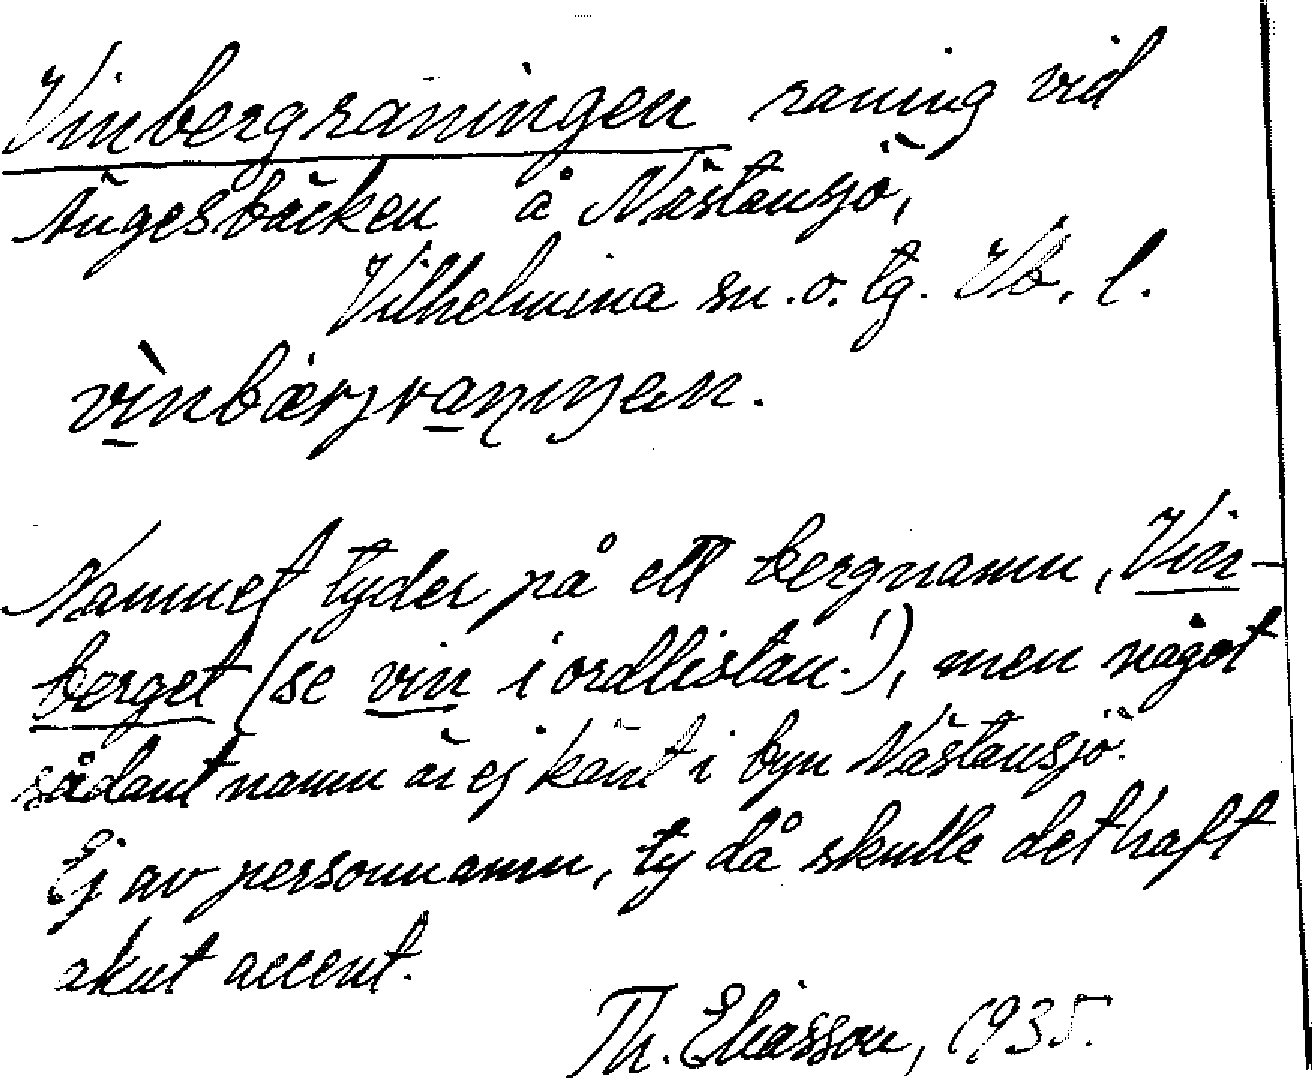 Vinbergraningen raning vid
Ängesbäcken å Nästansjö,
Vilhelmina sn. o. tg. Vb. l.
vìnbærjranıŋen.
Namnet tyder på ett bergnamn, Vin-
berget (se vin i ordlistan!), men något
sådant namn är ej känt i byn Nästansjö.
Ej av personnamn, ty då skulle det haft
akut accent.
Th. Eliasson, 1935.